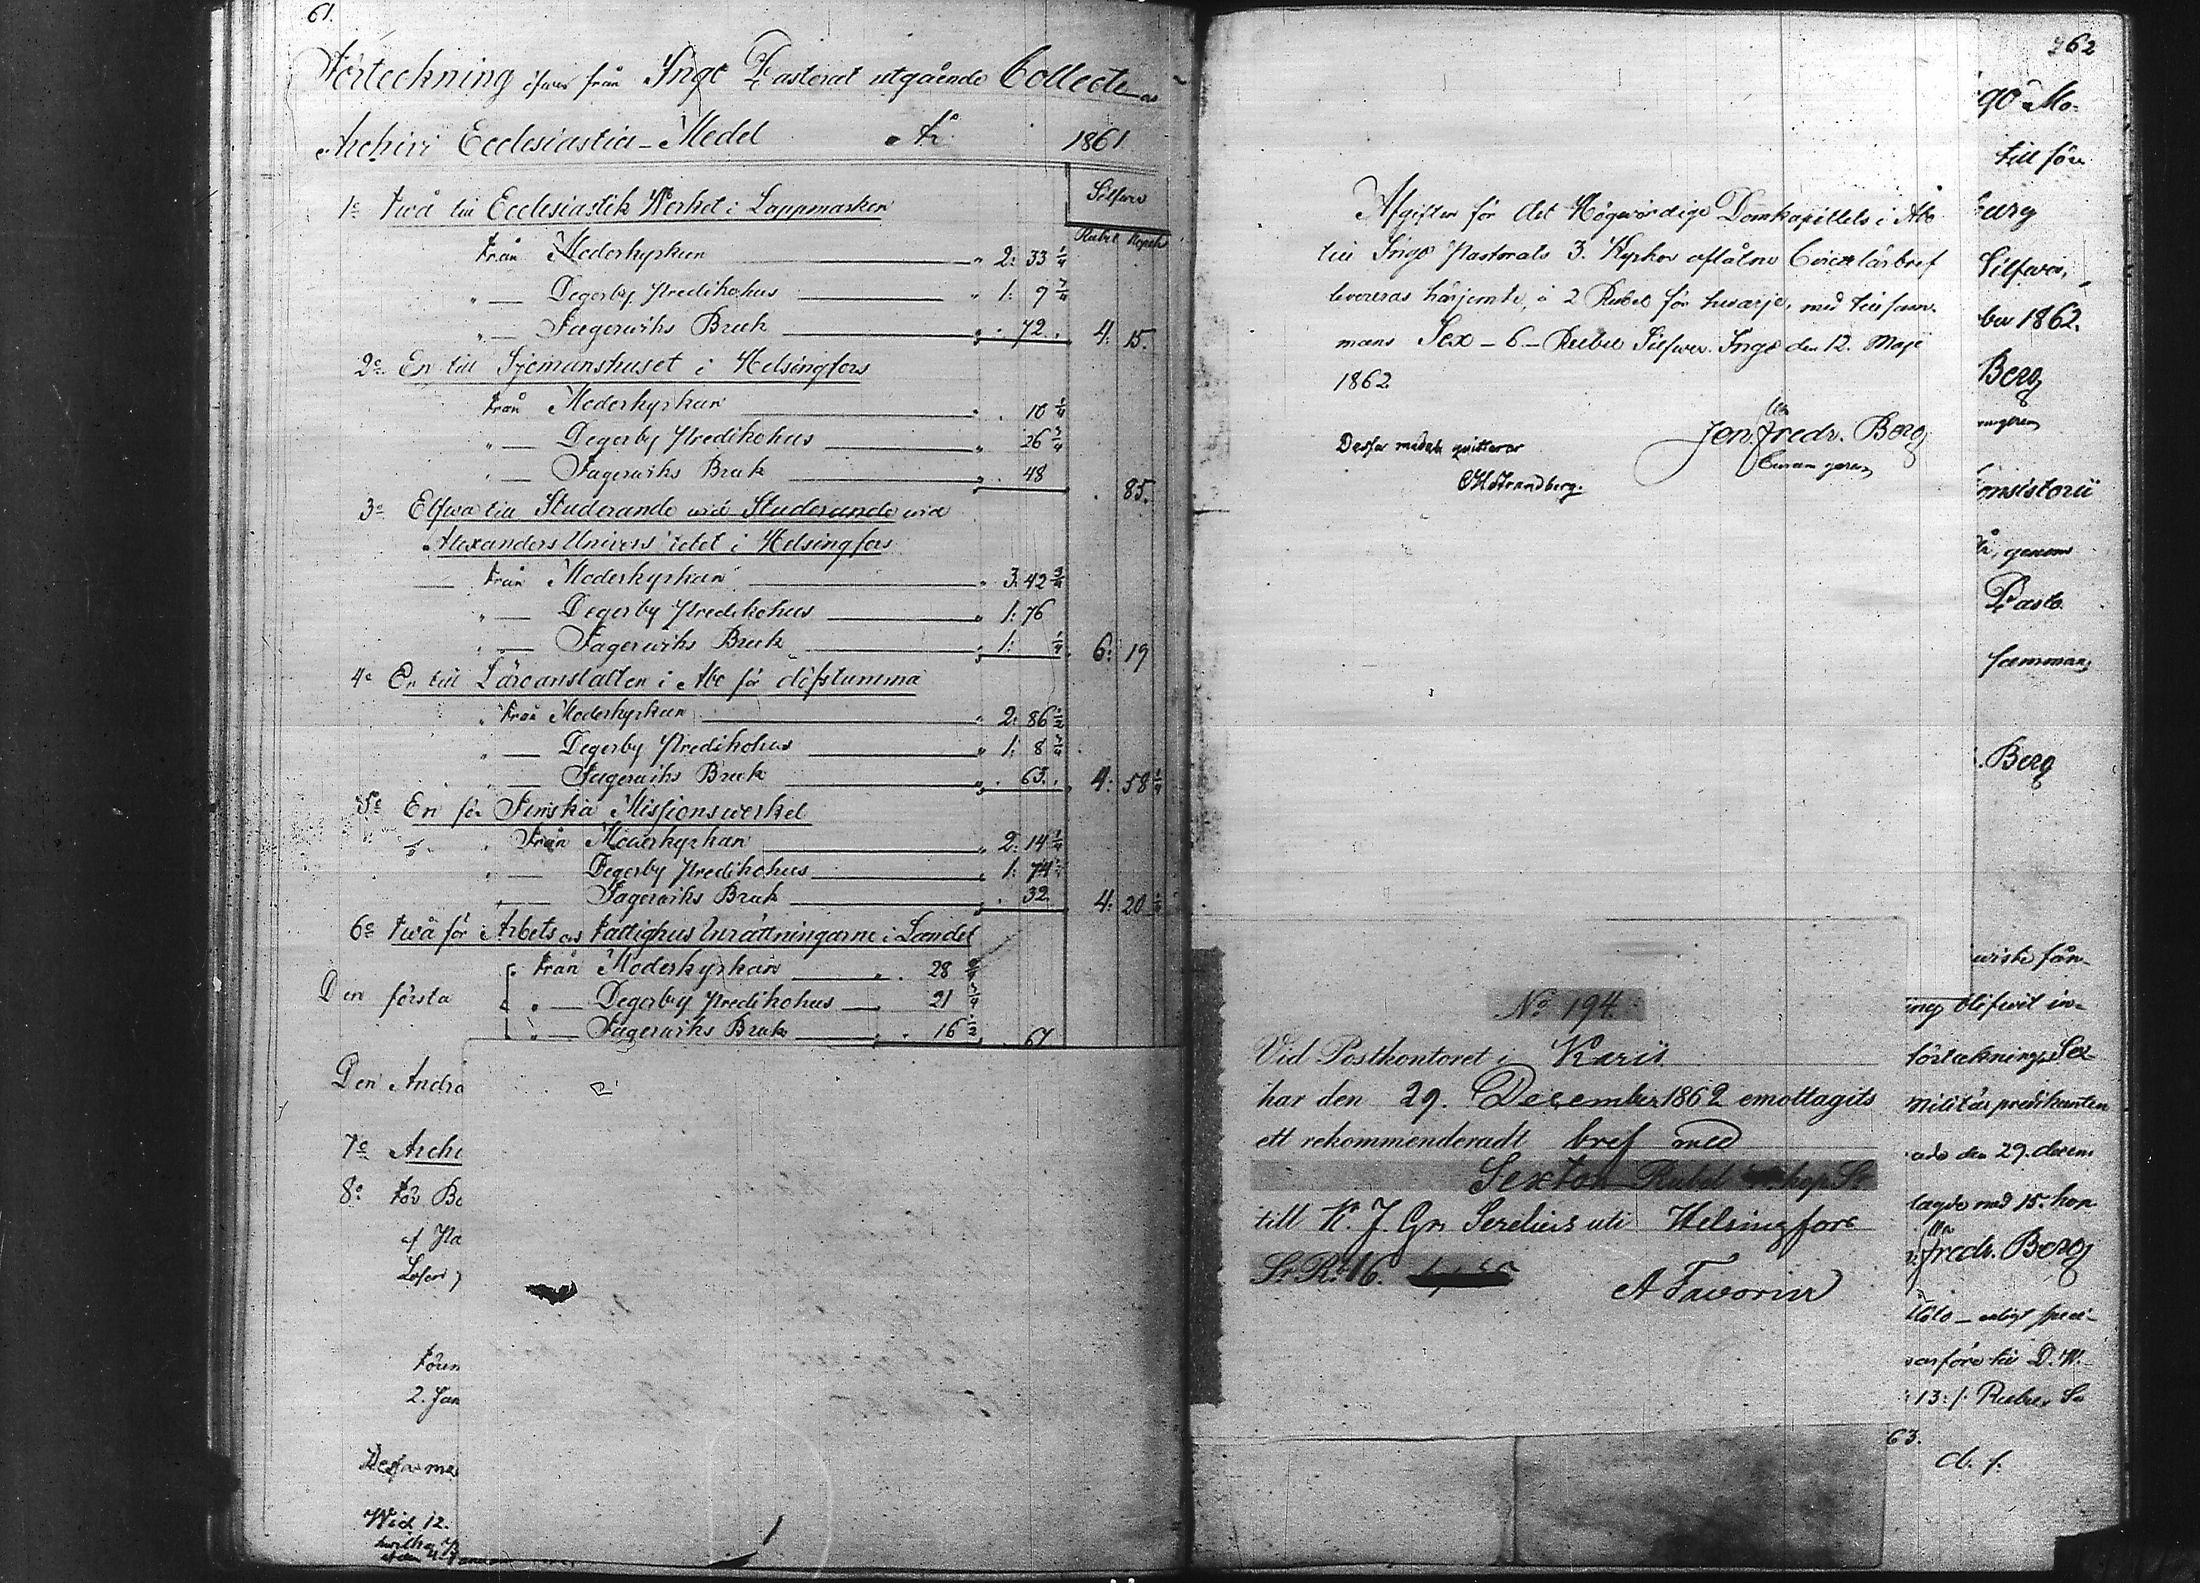 61.
Förteckning öfver från Ingo Pastorat utgående Collecte och
Archivi Ecclesiastici Medel År 1861
Silfver
Rubel Kopek
1o Två till Ecclesiastik Werket i Lappmarken
Från Moderkyrkan " 2: 33 1/4
" — Degerby Predikohus " 1: 9 3/4
" — Fagerviks Bruk " . 72. 4: 15.
2o En till Sjömanshuset i Helsingfors
Från Moderkyrkan " . 10 1/4
" — Degerby Predikohus " 26 3/4
" — Fagerviks Bruk " . 48 . 85.
3o Elfva till Studerande vid Studerande vid
Alexanders Universitetet i Helsingfors
Från Moderkyrkan " 3: 42 3/4
" — Degerby Predikohus " 1: 76
" — Fagerviks Bruk " 1: 1/4 6: 19
4o En till Läroanstalten i Åbo för döfstumma
Från Moderkyrkan " 2: 86 1/2
" — Degerby Predikohus " 1: 8 3/4
" — Fagerviks Bruk " . 63. 4: 58 1/4
5o En för Finska Missionswerket
" Från Moderkyrkan " 2: 14 1/4
" — Degerby Predikohus " 1: 74
" — Fagerviks Bruk " . 32. 4: 20 1/4
6o Två för Arbets och Fattighus Inrättningarne i Landet
Från Moderkyrkan " . 28 3/4
Den första " — Degerby Predikohus " 21 3/4
" — Fagerviks Bruk " . 16 1/2 . 67
Den Andra
7o Archi
8o För Bo
af Pa
Lösen
Fören
2. Jan
Dessa me
Wid 12.
262
Afgiften för det Högvördige Domkapitlets i Åbo
till Ingo Pastorats 3. Kyrkor aflåtne Circulärbref
levereras härjemte, à 2 Rubel för hvarje, med tillsam-
mans Sex – 6 – Rubel Silfver. Ingo den 12. Maji
1862.
Jon. Fredr. Berg
Dessa medel qvitterar
Strandberg.
No 194.
Vid Postkontoret i Karis
har den 29. December 1862 emottagits
ett rekommenderadt bref med
Sexton Rubel kop Sr
till K. J. Gn Serelius uti Helsingfors
Sr Ro 16.
A Favorin
go Mo-
till för
Silfver,
ber 1862.
Berg
onsistorii
genom
Pasto
samman
. Berg
ning blifvit in-
militär predikanten
ade den 29. decem
lagde med 15. kop
Fredr. Berg
13: /. Rubel Sr
63.
d. /.